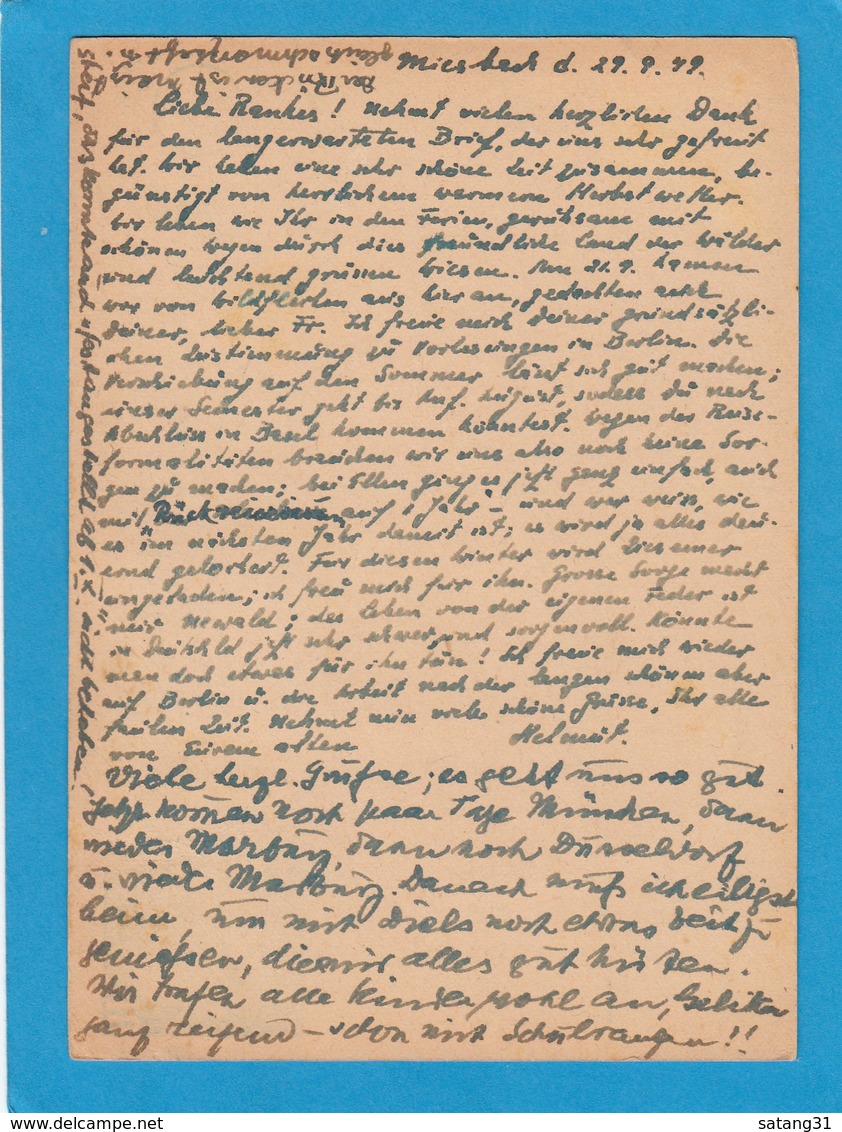 Miesbach d. 29. 9. 49.
Liebe Rankes! Nehmt vielen herzlichen Dank
für den langerwarteten Brief, der uns sehr gefreut
hat. Wir haben eine sehr schöne Zeit zusammen, be-
günstigt von herrlichem warmem Herbstwetter.
Wir leben wie Ihr in den Ferien, geruhsam mit
schönen Wegen durch dies freundliche Land der Wälder
und leuchtend grünen Wiesen. Am 21. 9. kamen
wir von aus hier an, gedachten auch
Deiner, lieber Fr. Ich freue mich Deiner grundsätzli-
chen Zustimmung zu Vorlesungen in Berlin. Die
Verschiebung auf den Sommer lässt sich gut machen;
unser Semester geht bis Anf. August, sodass Du nach
Abschluss in Basel kommen könntest. Wegen der Reise-
formalitäten brauchen wir uns also noch keine Sor-
gen zu machen; bei Ellen ging es jetzt ganz einfach, auch
mit auf 1 Jahr – und wer weiss, wie
es im nächsten Jahr damit ist; es wird ja alles dau-
ernd gelockert. Für diesen Winter wird
eingeladen; ich freu mich für ihn. Grosse Sorge macht
mir; das Leben von der eigenen Feder ist
in Deutschld jetzt sehr schwer und sorgenvoll. Könnte
man doch etwas für ihn tun! Ich freue mich wieder
auf Berlin u. die Arbeit nach der langen schönen aber
faulen Zeit. Nehmt nun viele schöne Grüsse, Ihr alle
von Eurem alten Helmut.
Viele herzl. Grüße; es geht uns so gut.
Jetzt kommen noch paar Tage München, dann
wieder Marburg, dann noch Düsseldorf
u. wieder Marburg. Danach muß ich eiligst
heim, um mit Diels noch etwas Zeit zu
genießen, die mir alles gut hüten.
Wir trafen alle Kinder wohl an,
ganz reizend – schon mit Schulranzen!!
satang31